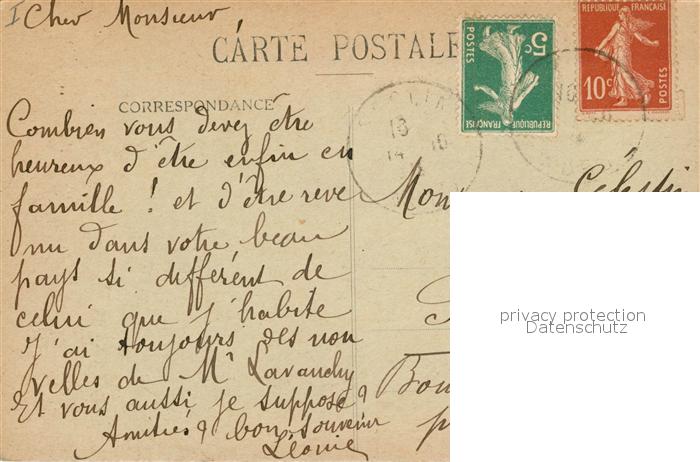 I Cher Monsieur
CARTE POSTALE
CORRESPONDANCE
Combien vous devez être
heureux d'être enfin en
famille ! et d'être reve
nu dans votre beau
pays si différent de
celui que j'habite
J'ai toujours des nou
velles de Mr Lavanchy
Et vous aussi je suppose ?
Amitiés & bon souvenir
Léonie
REPUBLIQUE FRANÇAISE
5c
POSTES
REPUBLIQUE FRANÇAISE
10c
POSTES
18
14
10
privacy protection
Datenschutz